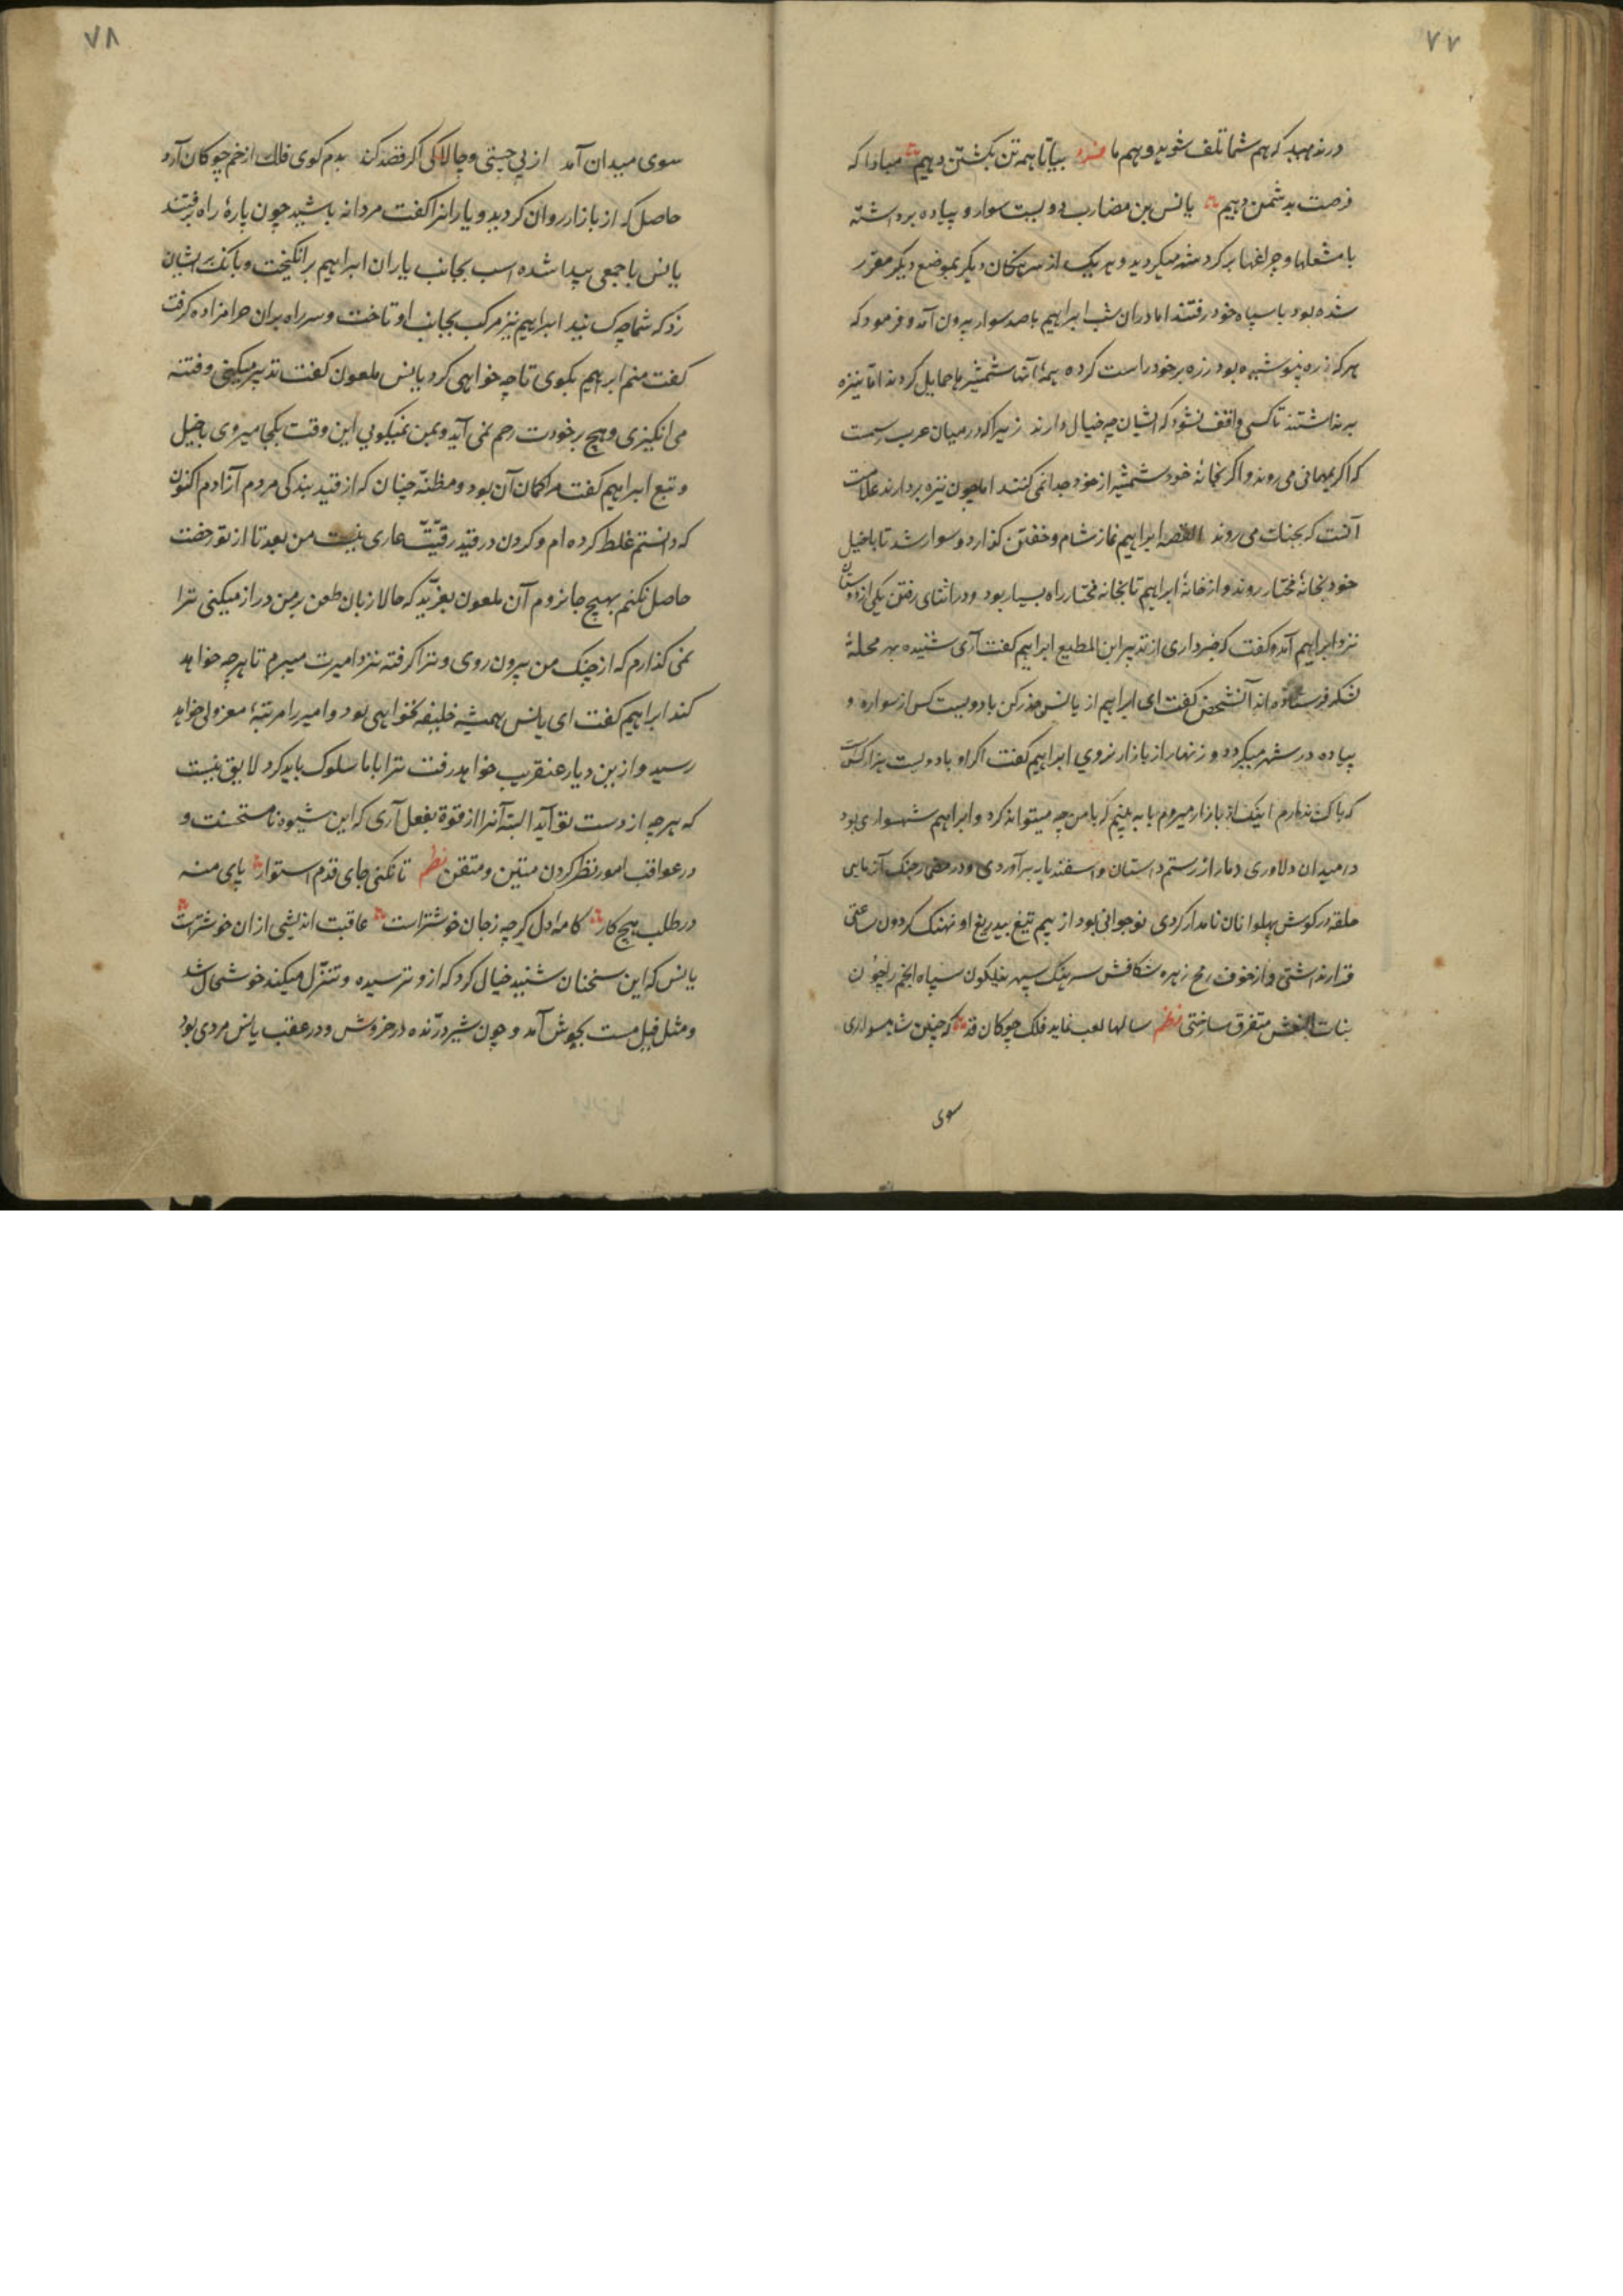 ۷۷
در ندهید که هم شما تلف شوید و هم ما فرد بیا تا همه تن بکشتن دهیم مبادا که
فرصت بدشمن دهیم یانس بن مضارب دویست سوار و پیاده برداشته
با مشعلها و چراغها بر کرد شهر میکردید و هر یک از سرهنکان دیکر بموضع دیکر مقرر
شده بود با سپاه خود رفتند اما دران شب ابراهیم با صد سوار بیرون آمد و فرمود که
هر که زره پوشیده بود زره بر خود راست کرده همهٔ آنها شمشیرها حمایل کردند اما نیزه
برنداشتند تا کسی واقف نشود که ایشان چه خیال دارند زیرا که در میان عرب رسمست
که اکر بمهمانی می روند و اکر بخانهٔ خود شمشیر از خود جدا نمی کنند اما چون نیزه بردارند علامت
آنست که بجنک می روند القصه ابراهیم نماز شام و خفتن کذارد و سوار شد تا با خیل
خود بخانهٔ مختار روند و از خانهٔ ابراهیم تا بخانه مختار راه بسیار بود و در اثنای رفتن یکی از دوستان
نزد ابراهیم آمد و کفت که خبر داری از تدبیر ابن المطیع ابراهیم کفت آری شنیده بهر محلهٔ
لشکر فرستاده اند آنشخص کفت ای ابراهیم از یانس حذر کن با دویست کس از سواره و
پیاده در شهر میکردد و زنهار از بازار نروی ابراهیم کفت اکر او با دویست هزار کست
که باک ندارم اینک از بازار میروم تا به بینم که با من چه میتواند کرد و ابراهیم شهسواری بود
در میدان دلاوری دمار از رستم دستان و اسفندیار برآوردی و در جنک آزمایی
حلقه در کوش پهلوانان نامدار کردی نوجوانی بود از بیم تیغ بیدریغ او نهنک کردون ساعتی
قرار نداشتی و از خوف رمح زهره شکافش سرهنک سپهر نیلکون سپاه انجم را چون
بنات النعش متفرق ساختی نظم سالها لعب نماید فلک چوکان قد که چنین شاهسواری
سوی
۷۸
سوی میدان آمد از پی چستی و چالاکی اکر قصد کند بدم کوی فلک از خم چوکان آرد
حاصل که از بازار روان کردید و یارانرا کفت مردانه باشید چون پارهٔ راه برفتند
یانس با جمعی پیدا شده اسب بجانب یاران ابراهیم برانکیخت و بانک بر ایشان
زد که شما چه کسانید ابراهیم نیز مرکب بجانب او تاخت و سر راه بران حرامزاده کرفت
کفت منم ابراهیم بکوی تا چه خواهی کرد یانس ملعون کفت تدبیر میکنی و فتنه
می انکیزی و هیچ بر خودت رحم نمی آید و بمن نمیکویی این وقت بکجا میروی با خیل
و تبع ابراهیم کفت مرا کمان آن بود و مظنّه چنان که از قید بندکی مردم آزادم اکنون
که دانستم غلط کرده ام و کردن در قید رقیّت عاری نیست من بعد تا از تو رخصت
حاصل نکنم بهیچ جا نروم آن ملعون بغرّید که حالا زبان طعن بر من دراز میکنی ترا
نمی کذارم که از چنک من بیرون روی و ترا کرفته نزد امیرت میبرم تا هر چه خواهد
کند ابراهیم کفت ای یانس همیشه خلیفه نخواهی بود و امیر را مرتبهٔ معزولی خواهد
رسید و ازین دیار عنقریب خواهد رفت ترا با ما سلوک باید کرد لایق نیست
که هر چه از دست تو آید البته آنرا از قوة بفعل آری که این شیوه نامستحسنست و
در عواقب امور نظر کردن متین و متقن نظم تا نکنی جای قدم استوار پای منه
در طلب هیچ کار کامه دل کرچه ز جان خوشترست عاقبت اندیشی از ان خوشترست
یانس که این سخنان شنید خیال کرد که ازو ترسیده و تنزّل میکند خوشحال شد
و مثل فیل مست بجوش آمد و چون شیر درنده در خروش و در عقب یانس مردی بود